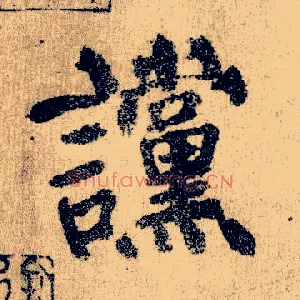 讜
shufawang.CN